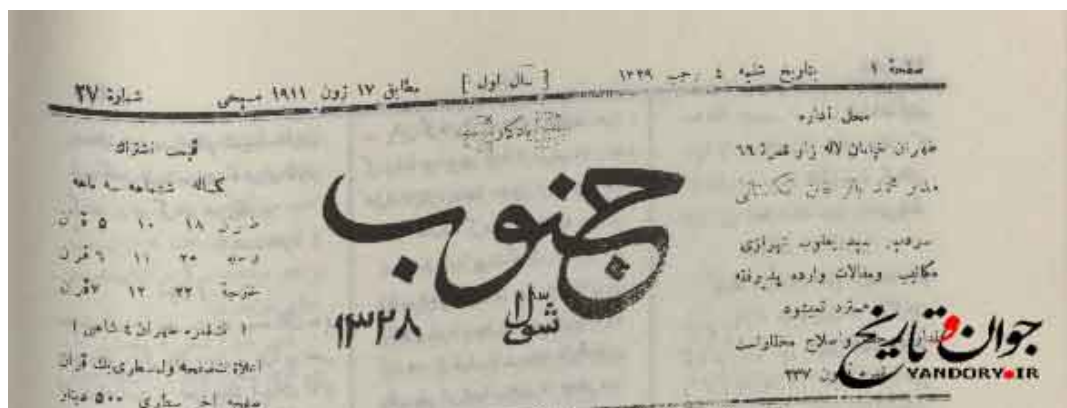 صفحهٔ ۱ بتاریخ شنبه ٤ رجب ۱۳۲۹ [ سال اول ] مطابق ۱۷ ژون ۱۹۱۱ مسیحی شمارهٔ ۲۷
محل اداره
طهران خیابان لاله زار نمرهٔ ٦٩
مدیر محمد باقر خان تنگستانی
سردبیر سید یعقوب شیرازی
مکاتیب ومقالات واردە پذیرفته
مسترد نمیشود
اداره واصلاح مطالب است
۲۳۷
یادگار
جنوب
شوال
۱۳۲۸
قیمت اشتراك
یکساله ششماهه سه ماهه
طهران ۱۸ ۱۰ ۵ قران
۲۰ ۱۱ ٦ قران
خارجه ۲۲ ۱۲ ۷ قران
( تکنمره طهران ٤ شاهی )
اعلانات صفحه اول سطری یك قران
صفحه آخر سطری ۵۰۰ دینار
جوان و تاریخ
YANDORY.IR